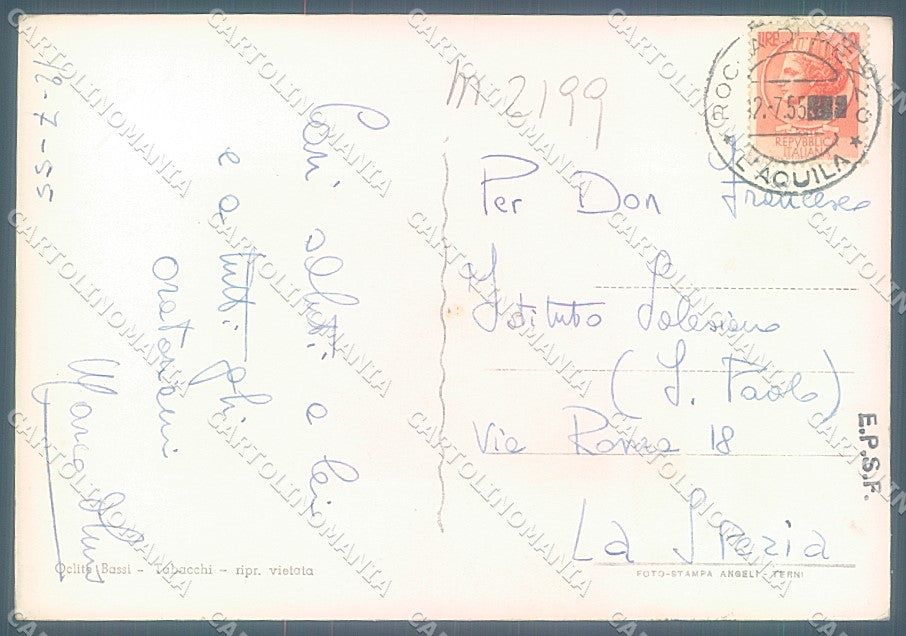 2/-7-55
Cari saluti a lei
e a tutti gli
oratoriani
M 2199
Per Don Francesco
Istituto Salesiano
(S. Paolo)
Via Roma 18
La Spezia
LIRE
REPVBBLICA
ITALIANA
ROCCA DI MEZZO
-7.55
★ L'AQUILA ★
E.P.S.F.
Oclite Bassi - Tabacchi - ripr. vietata
FOTO-STAMPA ANGELI - TERNI
CARTOLINOMANIA